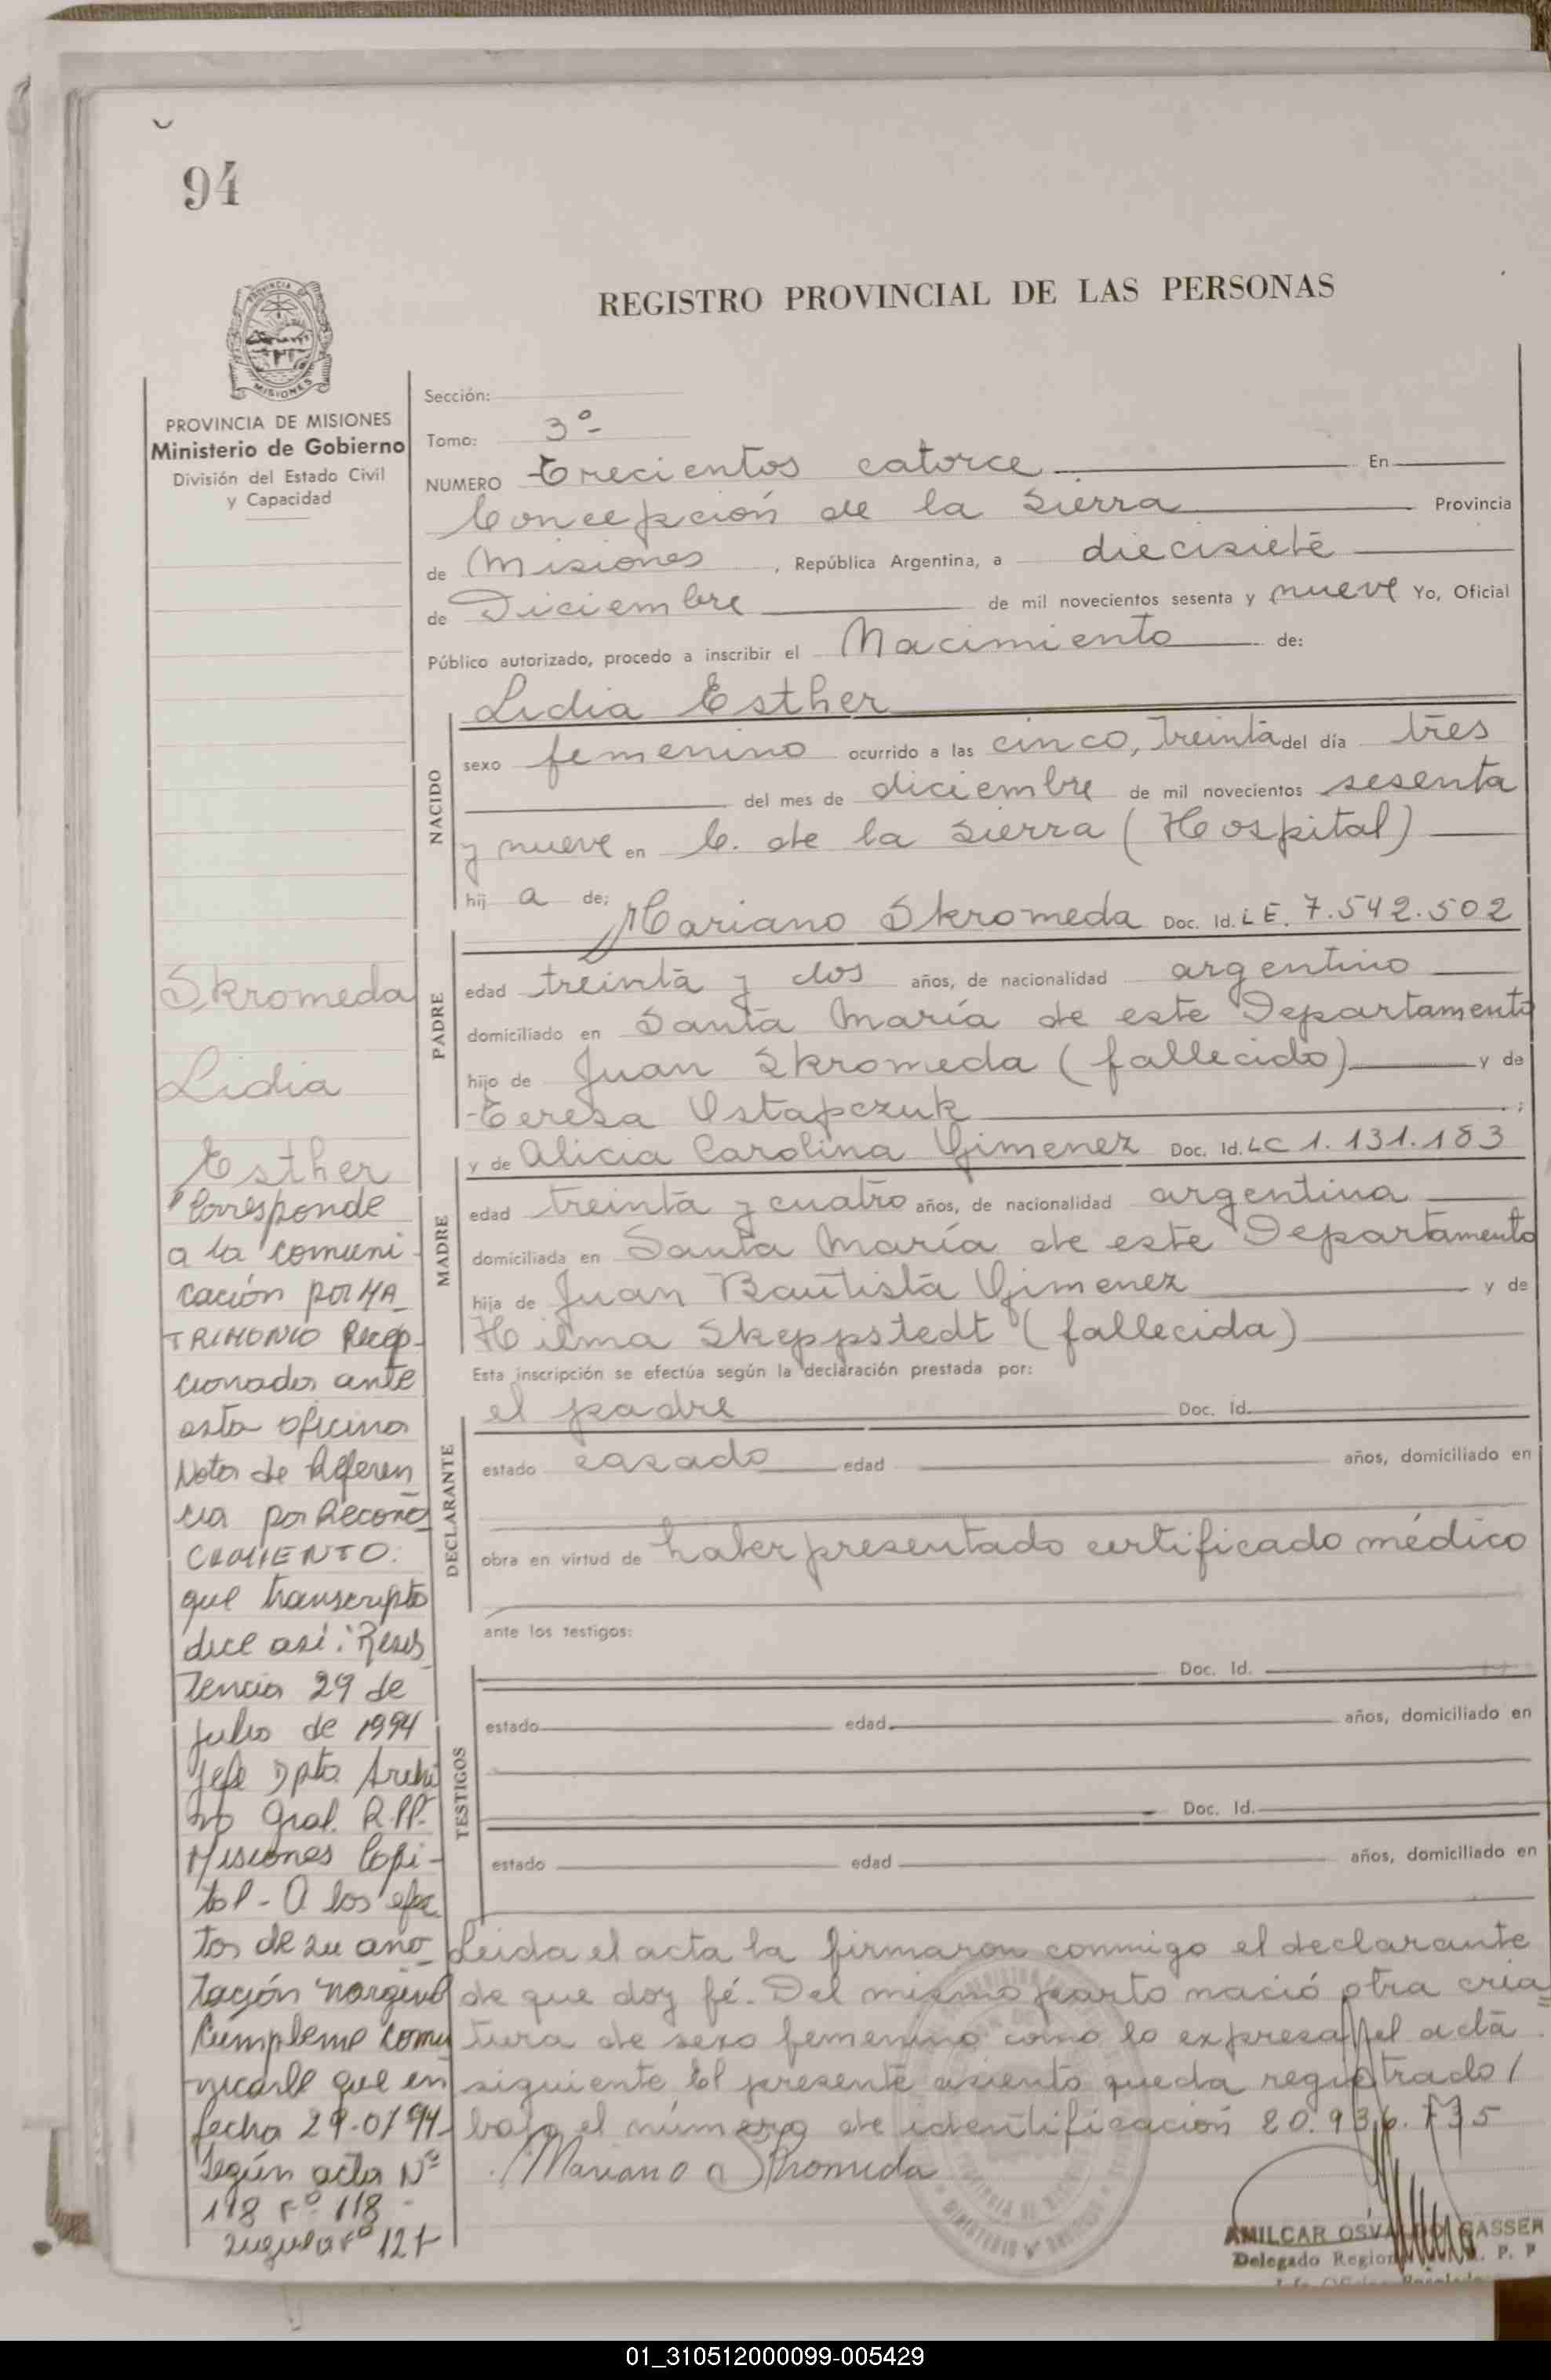 94
REGISTRO PROVINCIAL DE LAS PERSONAS
PROVINCIA DE MISIONES
Ministerio de Gobierno
División del Estado Civil
y Capacidad
Sección:
Tomo: 3º
NUMERO Trecientos catorce En
Concepción de la Sierra Provincia
de Misiones, República Argentina, a diecisiete
de Diciembre de mil novecientos sesenta y nueve Yo, Oficial
Público autorizado, procedo a inscribir el Nacimiento de:
NACIDO
Lidia Esther
sexo femenino ocurrido a las cinco, treinta del día tres
del mes de diciembre de mil novecientos sesenta
y nueve en C. de la Sierra (Hospital)
hij a de:
PADRE
Mariano Skromeda Doc. Id. LE. 7.542.502
edad treinta y dos años, de nacionalidad argentino
domiciliado en Santa María de este Departamento
hijo de Juan Skromeda (fallecido) y de
Teresa Ostapczuk ;
MADRE
y de Alicia Carolina Gimenez Doc. Id. LC 1.131.183
edad treinta y cuatro años, de nacionalidad argentina
domiciliada en Santa María de este Departamento
hija de Juan Bautista Gimenez y de
Hilma Skeppstedt (fallecida)
Esta inscripción se efectúa según la declaración prestada por:
DECLARANTE
el padre Doc. Id.
estado casado edad años, domiciliado en
obra en virtud de haber presentado certificado médico
ante los testigos:
TESTIGOS
Doc. Id.
estado edad años, domiciliado en
Doc. Id.
estado edad años, domiciliado en
Leida el acta la firmaron conmigo el declarante
de que doy fé. Del mismo parto nació otra cria=
tura de sexo femenino como lo expresa el acta
siguiente El presente asiento queda registrado/
bajo el número de identificación 20.936.735
Mariano Skromeda
AMILCAR OSVALDO GASSER
Delegado Regional R. P. P
Skromeda
Lidia
Esther
"Corresponde
a la comuni-
cación por MA_
TRIMONIO Recep-
cionada ante
esta oficina
Nota de Referen
cia por Recono
CIMIENTO:
que transcripto
dice así: "Resis
tencia 29 de
Julio de 1994
Jefe Dpto. Archi
vo Gral. R.PP.
Misiones Capi-
tal - A los efec
tos de su ano_
tación marginal
Cumpleme comu
nicarle que en
fecha 29-07-94
según acta Nº
118 Fº 118
01_310512000099-005429